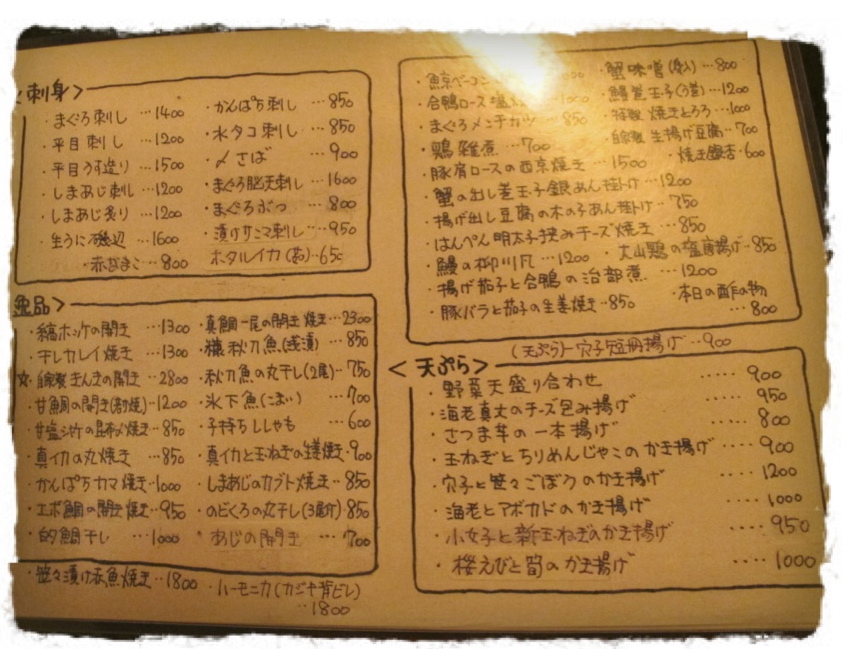 <刺身>
・まぐろ刺し …1400
・平目刺し …1200
・平目うす造り …1500
・しまあじ刺し …1200
・しまあじ炙り …1200
・生うに磯辺 …1600
・赤なまこ …800
・かんぱち刺し …850
・水タコ刺し …850
・〆さば …900
・まぐろ脳天刺し …1600
・まぐろぶつ …800
・漬けサンマ刺し …950
ホタルイカ(茹) …650
逸品>
・縞ホッケの開き …1300
・干しカレイ焼き …1300
☆・自家製きんきの開き …2800
・甘鯛の開き(若狭焼) …1200
・甘塩シャケの昆布〆焼き …850
・真イカの丸焼き …850
・かんぱちカマ焼き …1000
・エボ鯛の開き焼き …950
・的鯛干し …1000
・真鯛一尾の開き焼き …2300
・糠秋刀魚(浅漬) …850
・秋刀魚の丸干し(2尾) …750
・氷下魚(こまい) …700
・子持ちししゃも …600
・真イカと玉ねぎの生姜焼き …900
・しまあじのカブト焼き …850
・のどくろの丸干し(3尾付) …850
・あじの開き …700
・笹々漬け赤魚焼き …1800
・ハーモニカ(カジキ背ビレ)
…1800
・鯨ベーコン
・合鴨ロース塩 1000
・まぐろメンチカツ …850
・鶏雑煮 …700
・豚肩ロースの西京焼き …1500
・蟹の出し巻玉子銀あん掛け …1200
・揚げ出し豆腐の木の子あん掛け …750
・はんぺん明太子挟みチーズ焼き …850
・鰻の柳川風 …1200
・揚げ茄子と合鴨の治部煮 …1200
・豚バラと茄子の生姜焼き …850
・蟹味噌 …800
・鰻巻玉子 …1200
・特製焼きとろろ …1000
・自家製生揚げ豆腐 …700
・焼き銀杏 …600
・大山鶏の塩唐揚げ …850
・本日の酢の物
…800
(天ぷら)-穴子短冊揚げ …900
<天ぷら>
・野菜天盛り合わせ ……900
・海老真丈のチーズ包み揚げ ……950
・さつま芋の一本揚げ ……800
・玉ねぎとちりめんじゃこのかき揚げ ……900
・穴子と笹々ごぼうのかき揚げ ……1200
・海老とアボカドのかき揚げ ……1000
・小女子と新玉ねぎのかき揚げ ……950
・桜えびと筍のかき揚げ ……1000